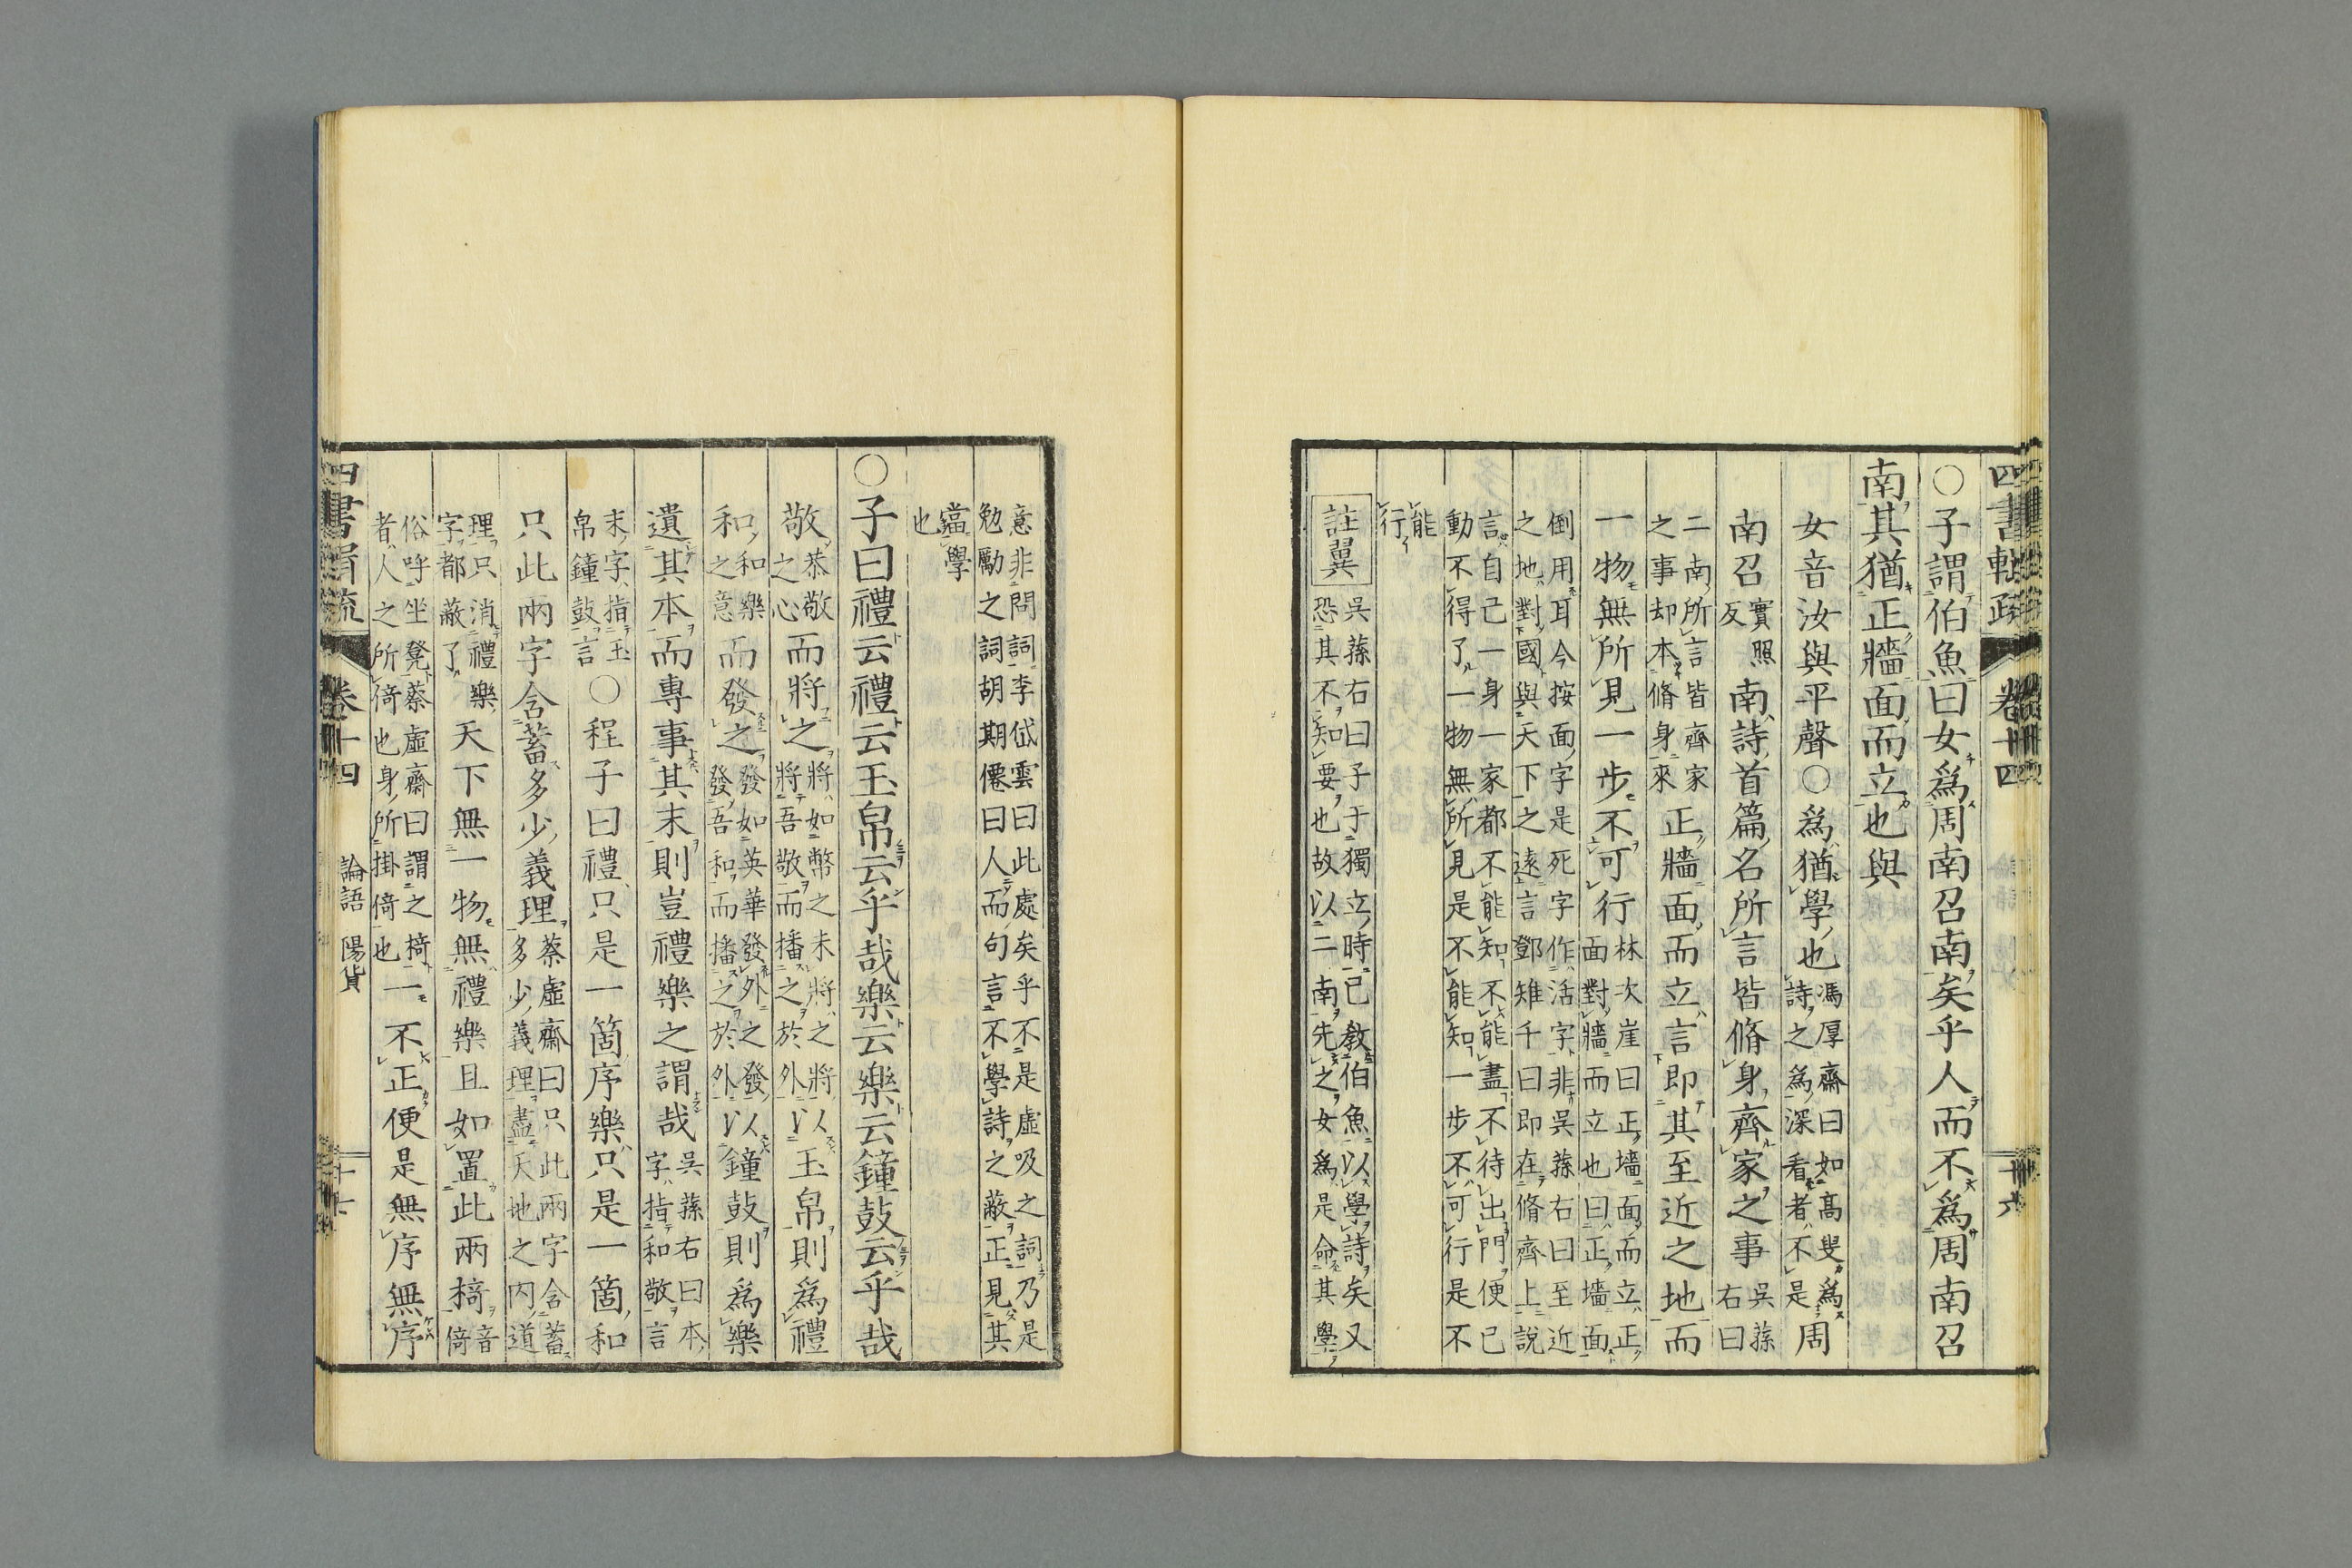 四書䡄疏 卷十四 十六
○子謂伯魚曰女爲周南召南矣乎人而不爲周南召
南其猶正牆面而立也與
女音汝與平聲○爲猶學也馮厚齋曰如高叟爲
詩之爲深看者不是周
南召實照
反南詩首篇名所言皆脩身齊家之事吳蓀
右曰
二南所言皆齊家
之事却本脩身來正牆面而立言即其至近之地而
一物無所見一步不可行林次崖曰正墻面而立正
面對牆而立也曰正墻面
倒用耳今按面字是死字作活字非吳蓀右曰至近
之地對國與天下之遠言鄧雉千曰即在脩齊上說
言自己一身一家都不能知不能盡不待出門便已
動不得了一物無所見是不能知一步不可行是不
能
行
註翼 吳蓀右曰子于獨立時已教伯魚以學詩矣又
恐其不知要也故以二南先之女爲是命其學
意非問詞李岱雲曰此處矣乎不是虛吸之詞乃是
勉勵之詞胡期僊曰人而句言不學詩之蔽正見其
當學
也
○子曰禮云禮云玉帛云乎哉樂云樂云鐘鼓云乎哉
敬恭敬
之心而將之將如幣之未將之將
將吾敬而播之於外以玉帛則爲禮
和和樂
之意而發之發如英華發外之發
發吾和而播之於外以鐘鼓則爲樂
遺其本而專事其末則豈禮樂之謂哉吳蓀右曰本
字指和敬言
末字指玉
帛鐘鼓言○程子曰禮只是一箇序樂只是一箇和
只此兩字含蓄多少義理蔡虛齋曰只此兩字含蓄
多少義理盡天地之内道
理只消禮樂
字都蔽了天下無一物無禮樂且如置此兩椅音
倚
俗呼坐凳蔡虛齋曰謂之椅
者人之所倚也身所掛倚也一不正便是無序無序
卷十四 論語 陽貨 十七